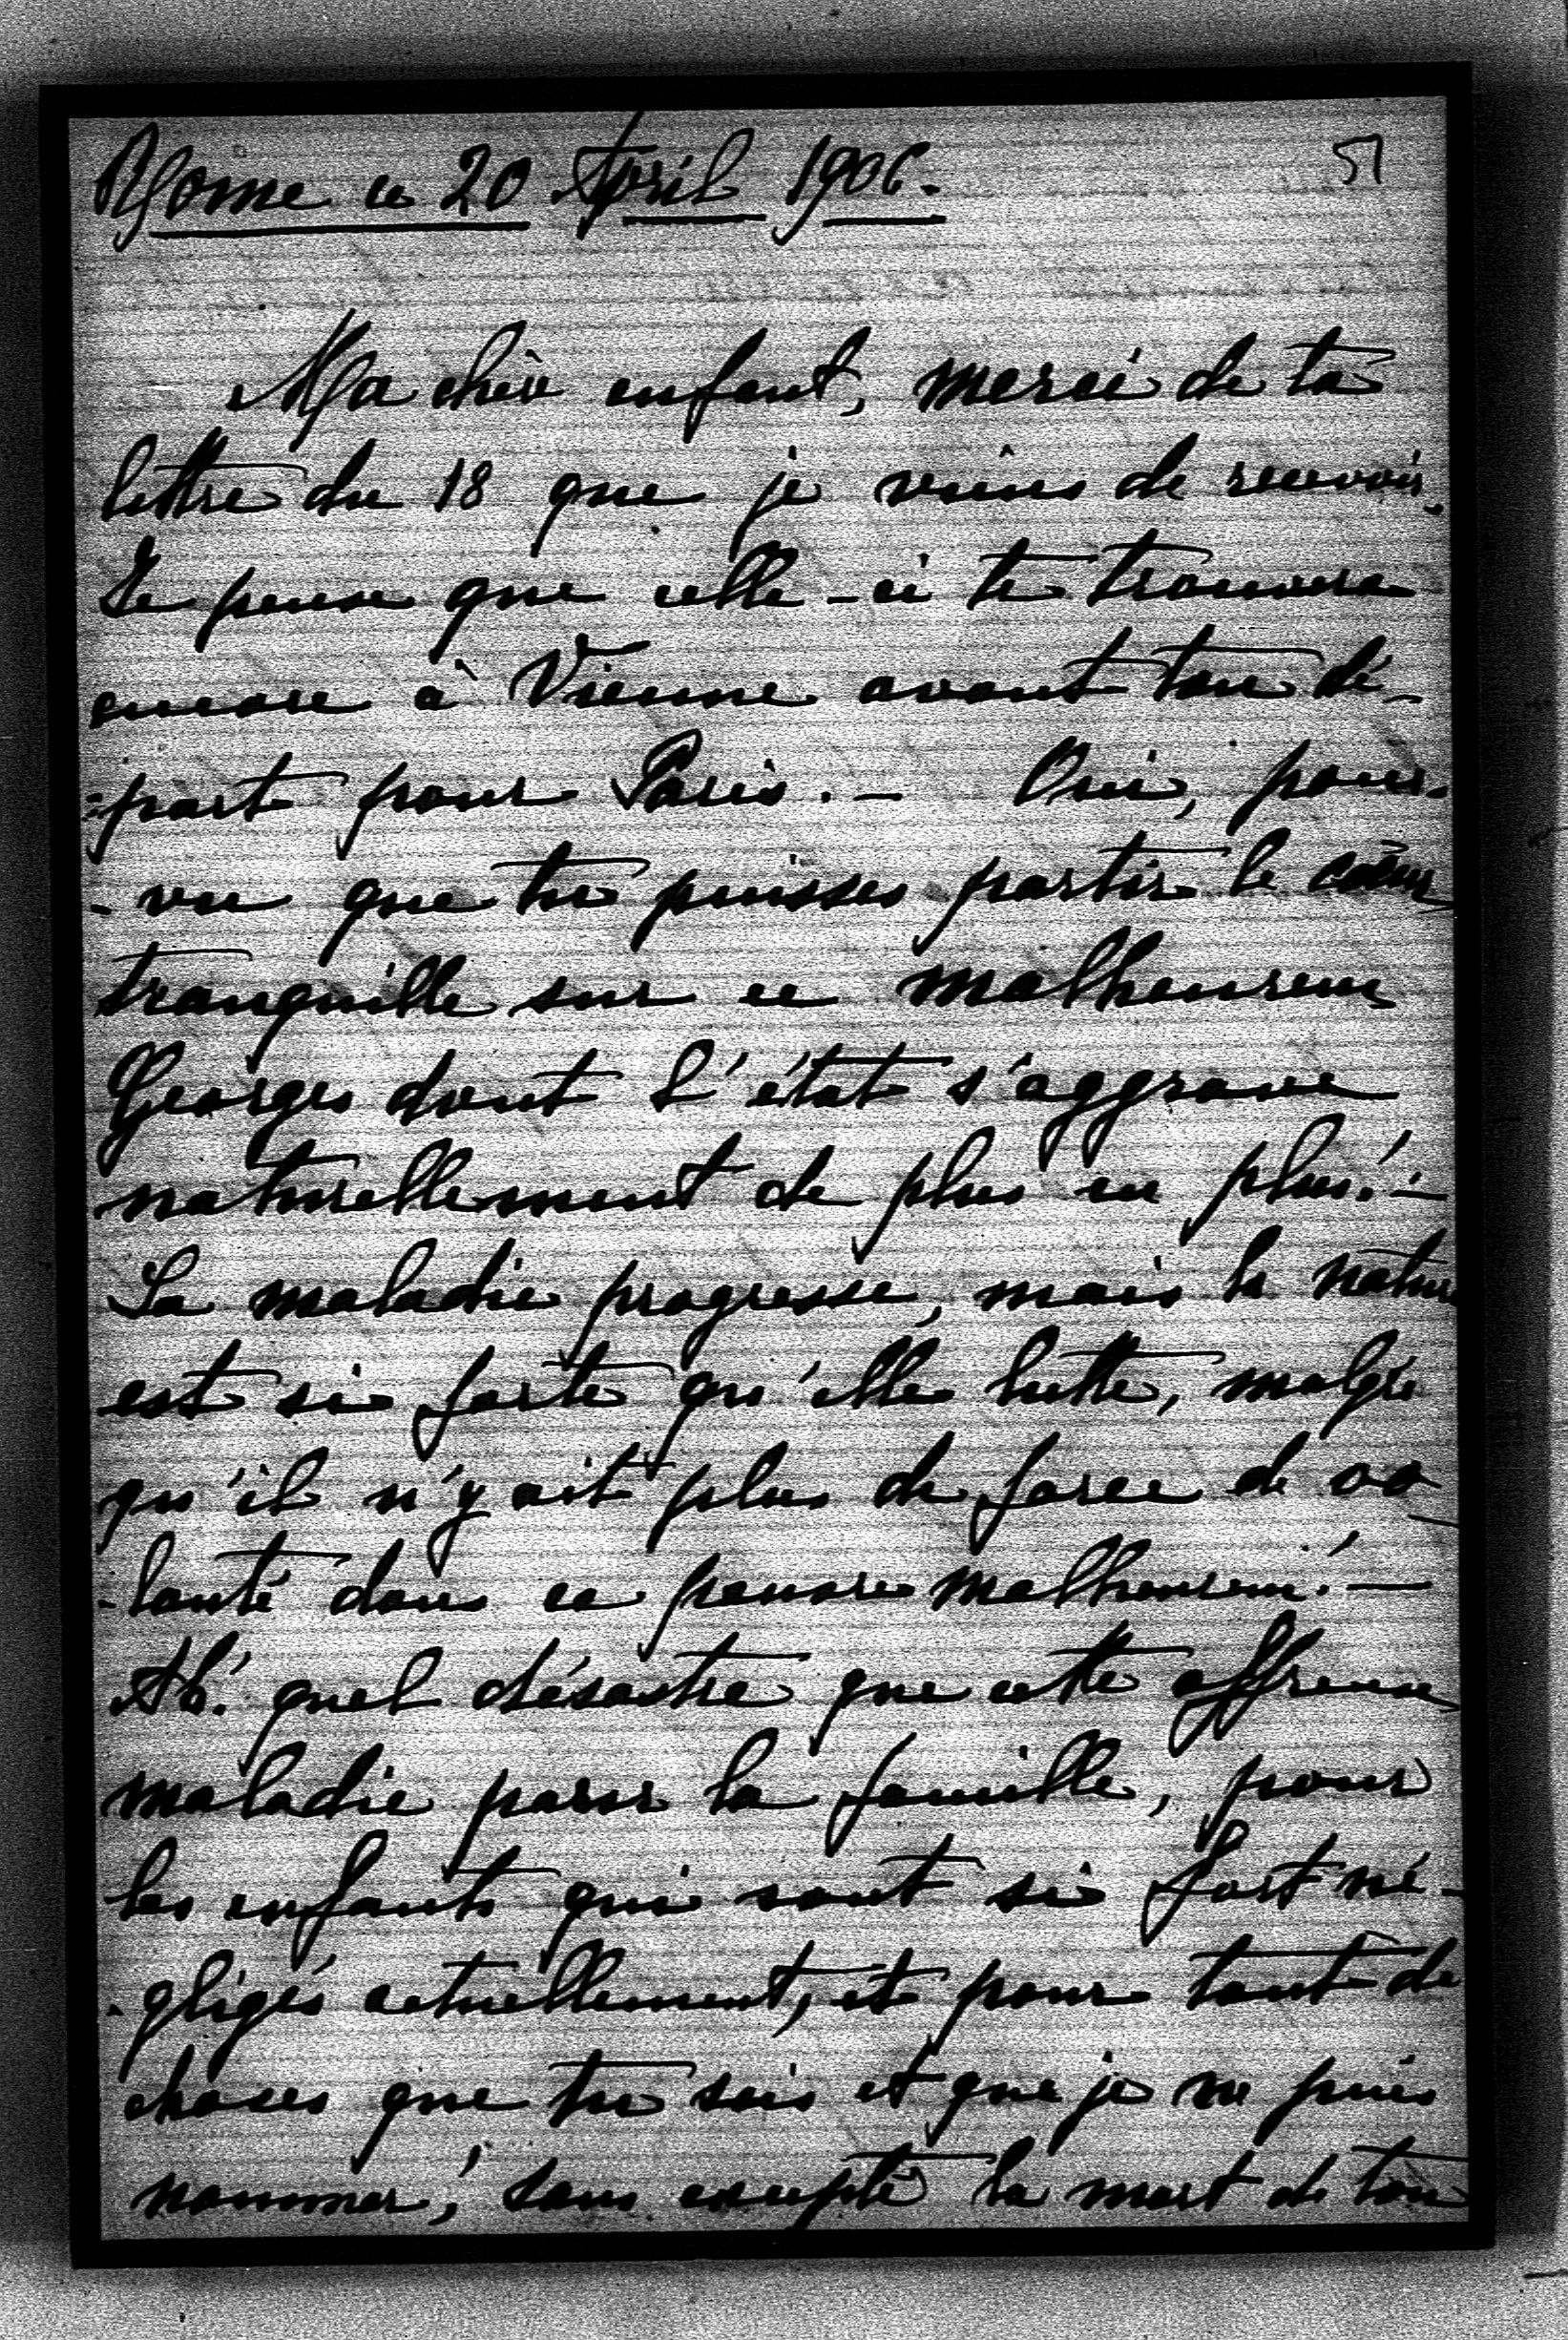 Rome ce 20 Avril 1906.
51
Ma chère enfant, merci de ta
lettre du 18 que je viens de recevoir.
Je pense que celle-ci te trouvera
encore à Vienne avant ton dé-
-part pour Paris. - Oui, pour-
-vu que tu puisses partir le cœur
tranquille sur ce malheureux
Georges dont l'état s'aggrave
naturellement de plus en plus! -
La maladie progresse, mais la nature
est si forte qu'elle lutte, malgré
qu'il n'y ait plus de force de vo-
-lonté dans ce pauvre malheureux! -
Ah! quel désastre que cette affreuse
maladie pour la famille, pour
les enfants qui sont si fort né-
-gligés actuellement, et pour tant de
choses que tu sais et que je ne puis
nommer, sans excepté la mort de ton